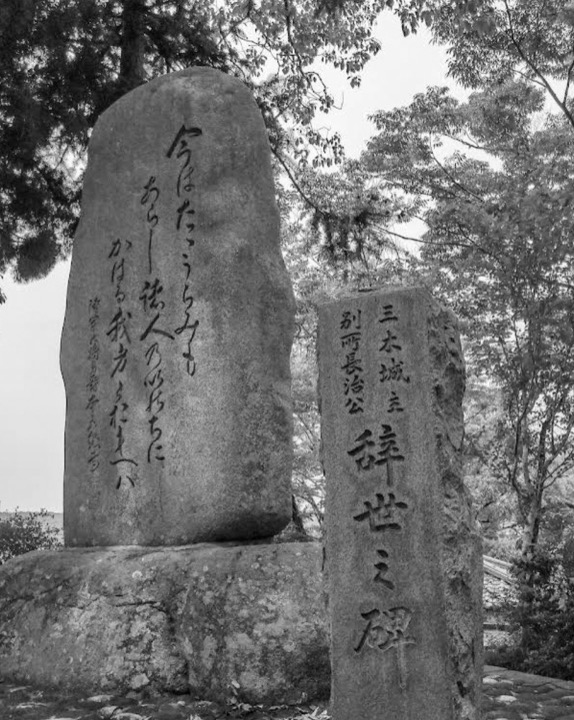 三木城主
別所長治公
辞世之碑
今はたゝうらみも
あらし諸人乃いのちに
かはる我身とおもへハ